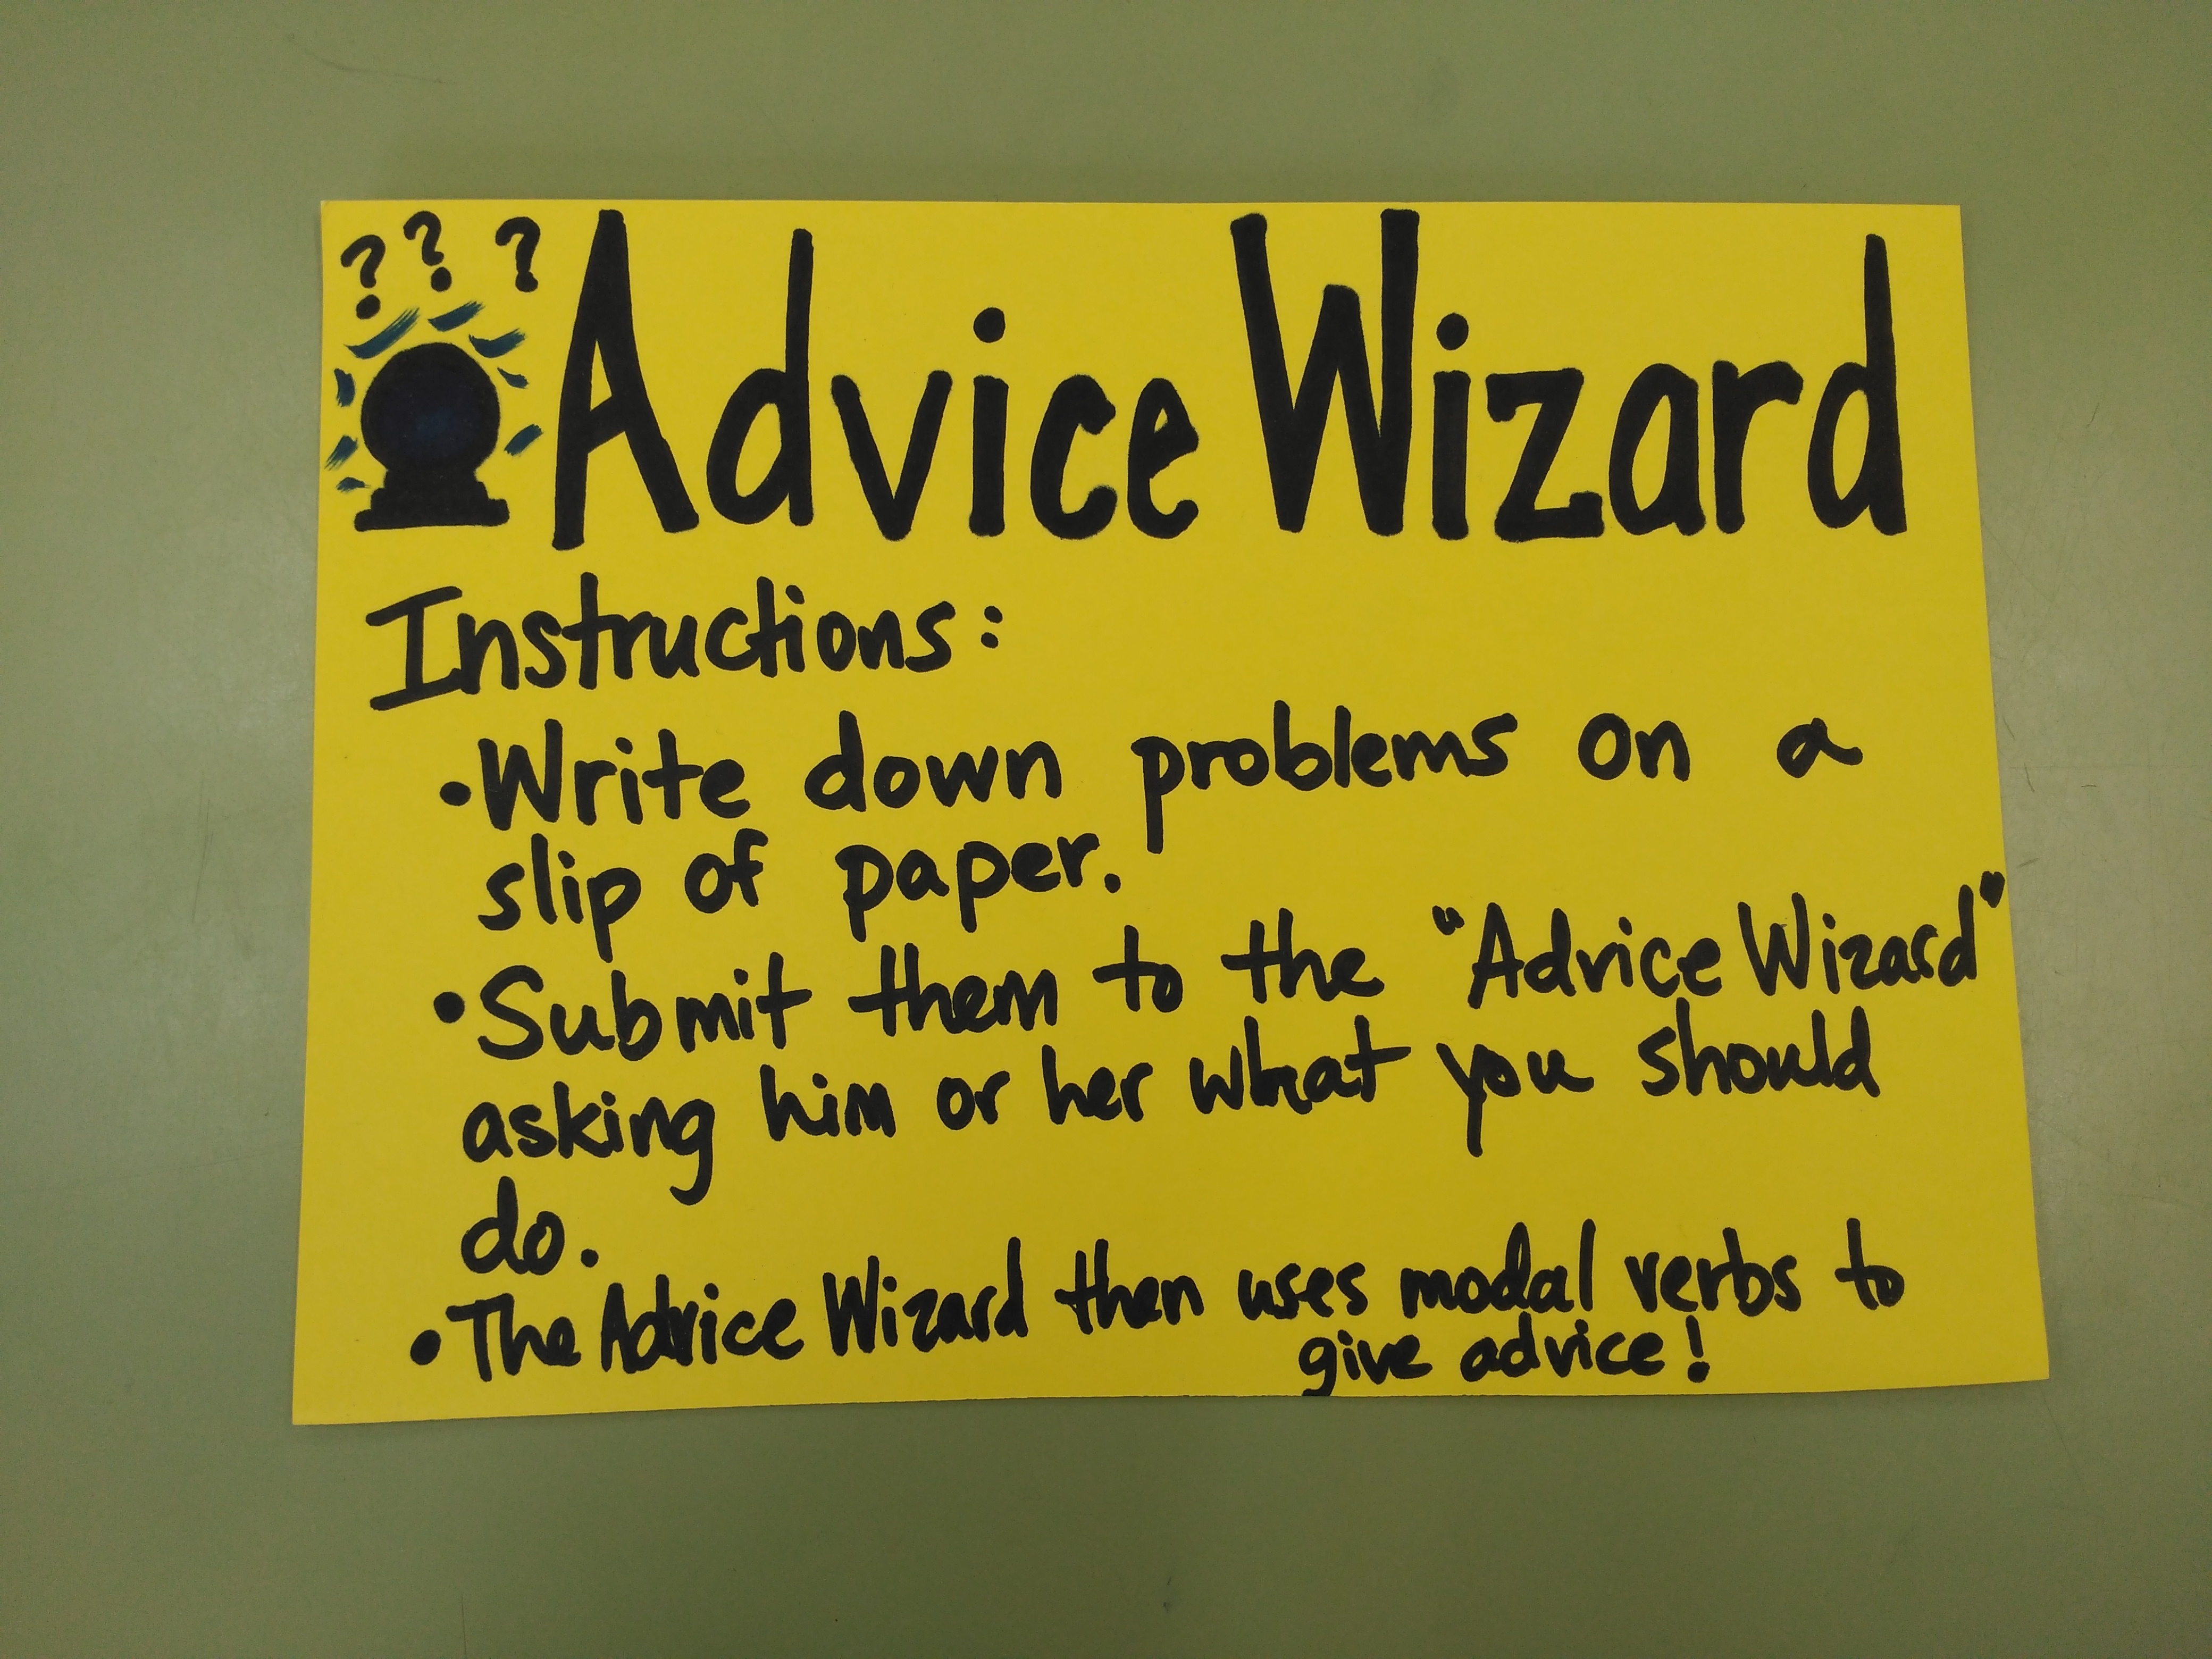 ? ? ?
Advice Wizard
Instructions:
• Write down problems on a
slip of paper.
• Submit them to the "Advice Wizard"
asking him or her what you should
do.
• The Advice Wizard then uses modal verbs to
give advice!